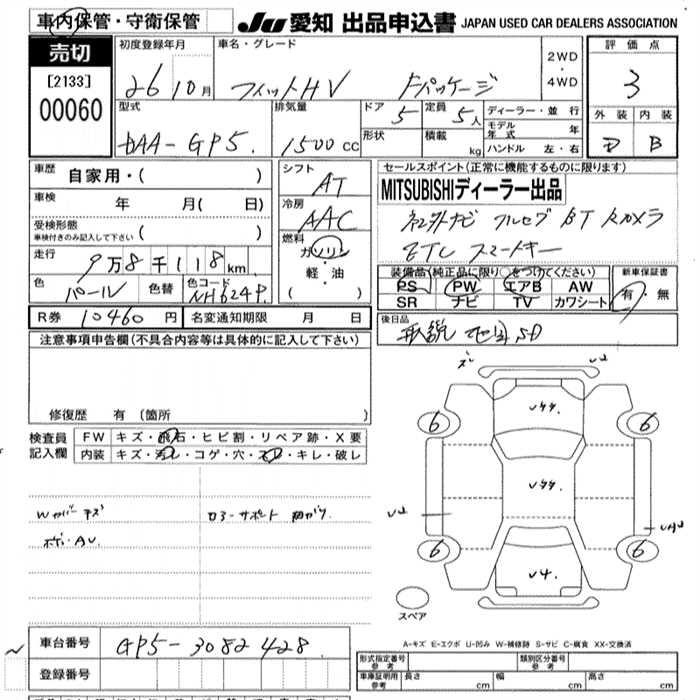 車内保管・守衛保管
JU 愛知 出品申込書 JAPAN USED CAR DEALERS ASSOCIATION
売切
[2133]
00060
初度登録年月
26 10月
車名・グレード
フィットHV Fパッケージ
2WD
・
4WD
評価点
3
外装 内装
D B
型式
DAA-GP5
排気量
1500 cc
ドア
5
定員
5人
形状
積載
kg
ディーラー・並行
モデル年式 年
ハンドル 左・右
車歴 自家用・( )
車検 年 月( 日)
受検形態
車検付きのみ記入して下さい ( )
走行 9万8千118km
色 パール 色替 色コード NH624P
シフト
AT
冷房
AAC
燃料
ガソリン
・
軽・油
( )
セールスポイント(正常に機能するものに限ります)
MITSUBISHIディーラー出品
社外ナビ フルセグ BT Rカメラ
ETC スマートキー
装備品(純正品に限り○をつけてください)
PS PW エアB AW
SR ナビ TV カワシート
新車保証書
有・無
R券 10460円 名変通知期限 月 日
後日品
取説 地図SD
注意事項申告欄(不具合内容等は具体的に記入して下さい)
修復歴 有 (箇所 )
検査員
記入欄
FW キズ・飛石・ヒビ割・リペア跡・X要
内装 キズ・汚レ・コゲ・穴・スレ・キレ・破レ
Wカバー キズ
ボディ・AU
コアーサポート
6 6
6 6
U4
スペア
A-キズ E-エクボ U-凹み W-補修跡 S-サビ C-腐食 XX-交換済
車台番号 GP5-3082428
登録番号
形式指定番号
参考
類別区分番号
参考
車庫証明用
参考
長さ cm 幅 cm 高さ cm